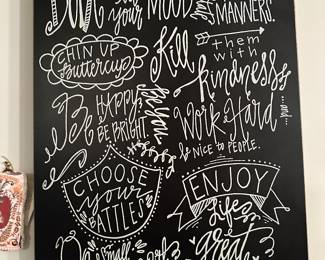 Don't
your MOOD
MANNERS.
CHIN UP
Buttercup
Kill
them
with
kindness
Be
HAPPY.
BE BRIGHT.
Be you.
...and...
Work Hard
& NICE TO PEOPLE.
CHOOSE
Your
BATTLES
ENJOY
Life's
Do
Small
great